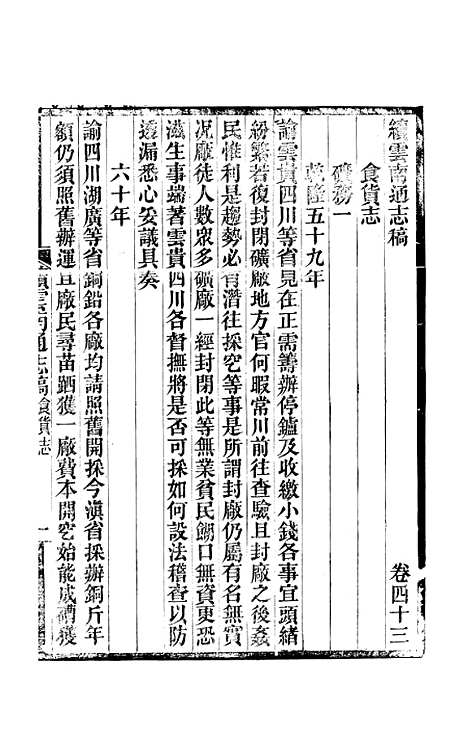 續雲南通志稿 卷四十三
食貨志
礦務一
乾隆五十九年
諭雲貴四川等省見在正需籌辦停鑪及收繳小錢各事宜頭緒
紛繁若復封閉礦廠地方官何暇常川前往查驗且封廠之後姦
民惟利是趨勢必有潛往採挖等事是所謂封廠仍屬有名無實
况廠徒人數衆多礦廠一經封閉此等無業貧民餬口無資更恐
滋生事端著雲貴四川各督撫將是否可採如何設法稽查以防
透漏悉心妥議具奏
六十年
諭四川湖廣等省銅鉛各廠均請照舊開採今滇省採辦銅斤年
額仍須照舊辦運且廠民尋苗跴獲一廠費本開挖始能成礌獲
續雲南通志稿食貨志 一